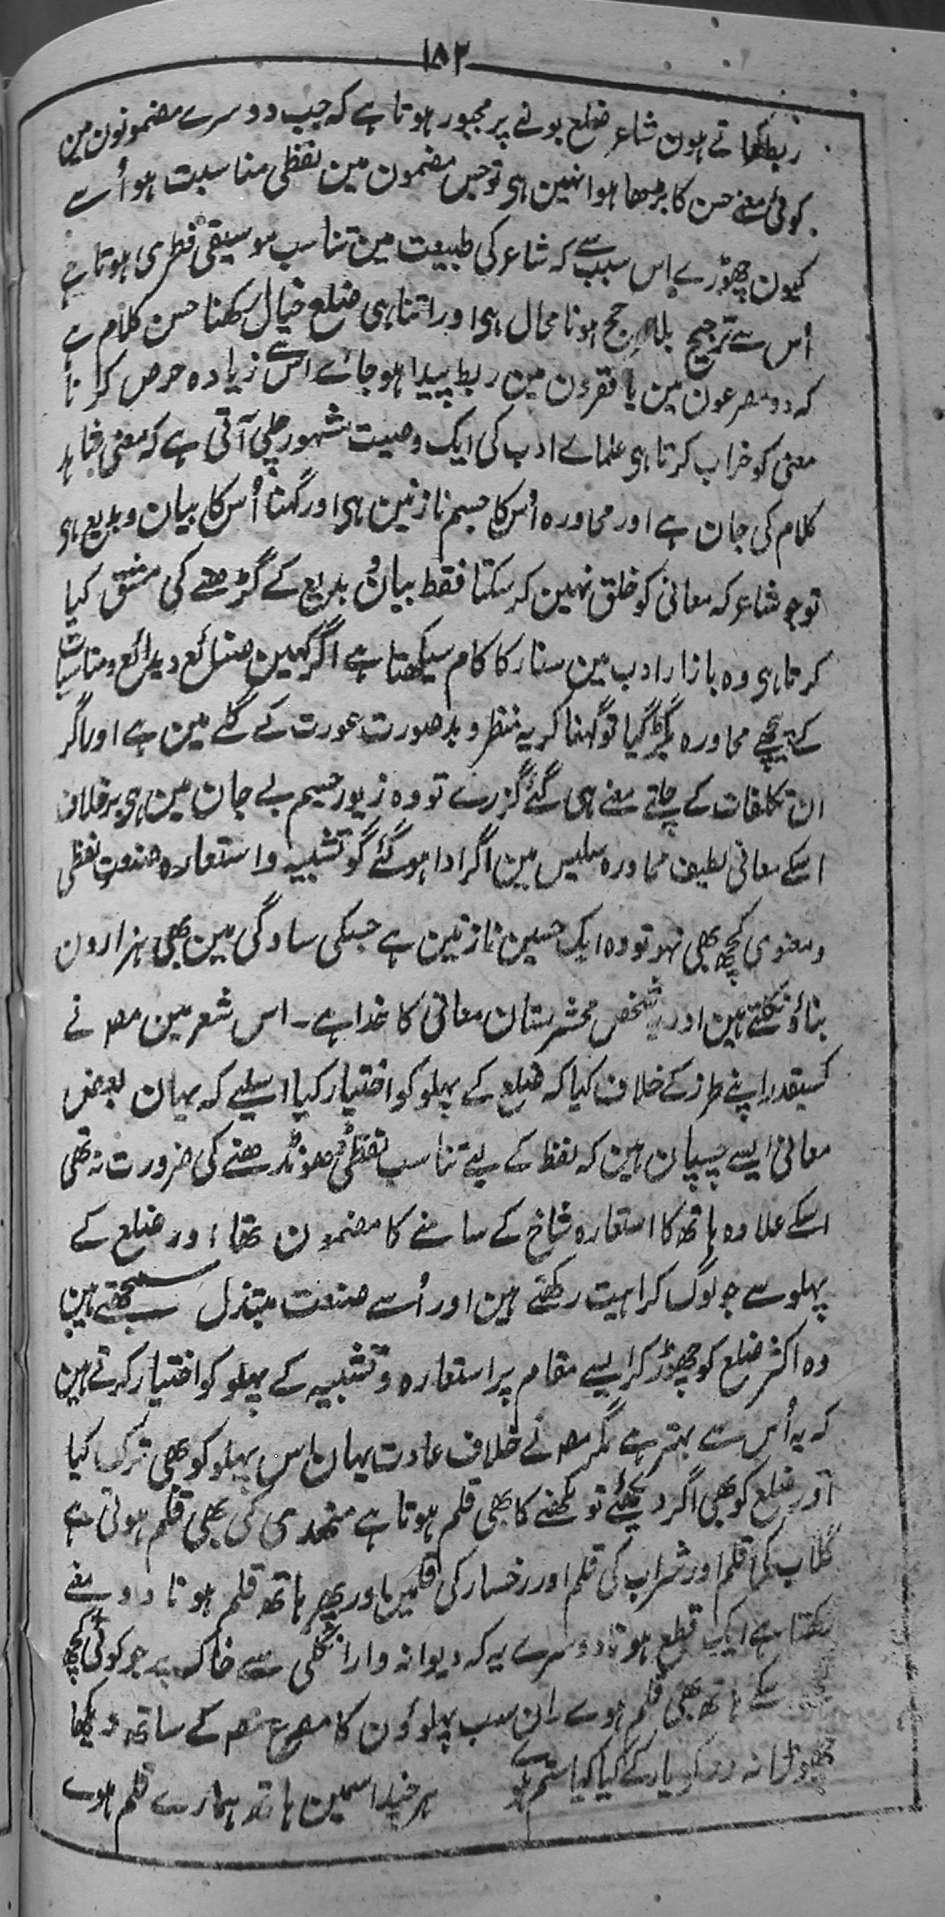 ۱۸۲
ربط کھاتے ہون شاعر ضلع بولنے پر مجبور ہوتا ہے کہ جب دوسرے مضمونون مین
کوئی معنے حسن کا بڑھا ہوا نہین ہی تو جس مضمون مین لفظی مناسبت ہو اُسے
کیون چھوڑے اس سبب سے کہ شاعر کی طبیعت مین تناسب موسیقی فطری ہوتا ہے
اُس سے ترجیح بلا مرجح ہونا محال ہی اور اتنا ہی ضلع خیال رکھنا حسن کلام ہے
کہ دو مصرعون مین یا فقرون مین ربط پیدا ہو جائے اس سے زیادہ حرص کرنا
معنی کو خراب کرتا ہی علماے ادب کی ایک وصیت مشہور چلی آتی ہے کہ معنی
کلام کی جان ہے اور محاورہ اُس کا جسم نازنین ہی اور گہنا اُس کا بیان و بدیع ہی
تو جو شاعر کہ معانی کو خلق نہین کر سکتا فقط بیان و بدیع کے گڑھنے کی مشق کیا
کرتا ہی وہ بازار ادب مین سنار کا کام سیکھتا ہے اگر کہین صنائع و بدائع و مناسبات
کے پیچھے محاورہ بگڑ گیا تو گہنا کریہ منظر و بدصورت عورت کے گلے مین ہے اور اگر
ان تکلفات کے چاتے معنے ہی گئے گزرے تو وہ زیور جسم بے جان مین ہی برخلاف
اسکے معانی لطیف محاورہ سلیس مین اگر ادا ہو گئے گو تشبیہ و استعارہ صنعت لفظی
و معنوی کچھ بھی نہو تو وہ ایک حسین نازنین ہے جسکی سادگی مین بھی ہزارون
بناؤ نکلتے ہین اور یہ شخص محشرستان معانی کا خدا ہے ۔ اس شعر مین مصہ نے
کسیقدر اپنے طرز کے خلاف کیا کہ ضلع کے پہلو کو اختیار کیا اسلیے کہ یہان بعض
معانی ایسے چسپان ہین کہ لفظ کے لیے تناسب لفظی ڈھونڈھنے کی ضرورت نہ تھی
اسکے علاوہ ہاتھ کا استعارہ شاخ کے سامنے کا مضمون تھا اور ضلع کے
پہلو سے جو لوگ کراہیت رکھتے ہین اور اُسے صنعت مبتذل سمجھتے ہین
وہ اکثر ضلع کو چھوڑ کر ایسے مقام پر استعارہ و تشبیہ کے پہلو کو اختیار کرتے ہین
کہ یہ اُس سے بہتر ہے مگر مصہ نے خلاف عادت یہان اس پہلو کو بھی ترک کیا
اور ضلع کو بھی اگر دیکھئے تو لکھنے کا بھی قلم ہوتا ہے منھدی کی بھی قلم ہوتی ہے
گلاب کی قلم اور شراب کی قلم اور رخسار کی قلمین اور پھر ہاتھ قلم ہونا دو معنے
رکھتا ہے ایک قطع ہونا دوسرے یہ کہ دیوانہ وار انگلی سے خاک پر جو کوئی کچھ
کے ہاتھ بھی قلم ہوے ان سب پہلوؤن کا مصرع مصہ کے ساتھ دیکھا
چھوڑا نہ کیا کیا ستم ہوے ہر چند اسمین ہاتھ ہمارے قلم ہوے